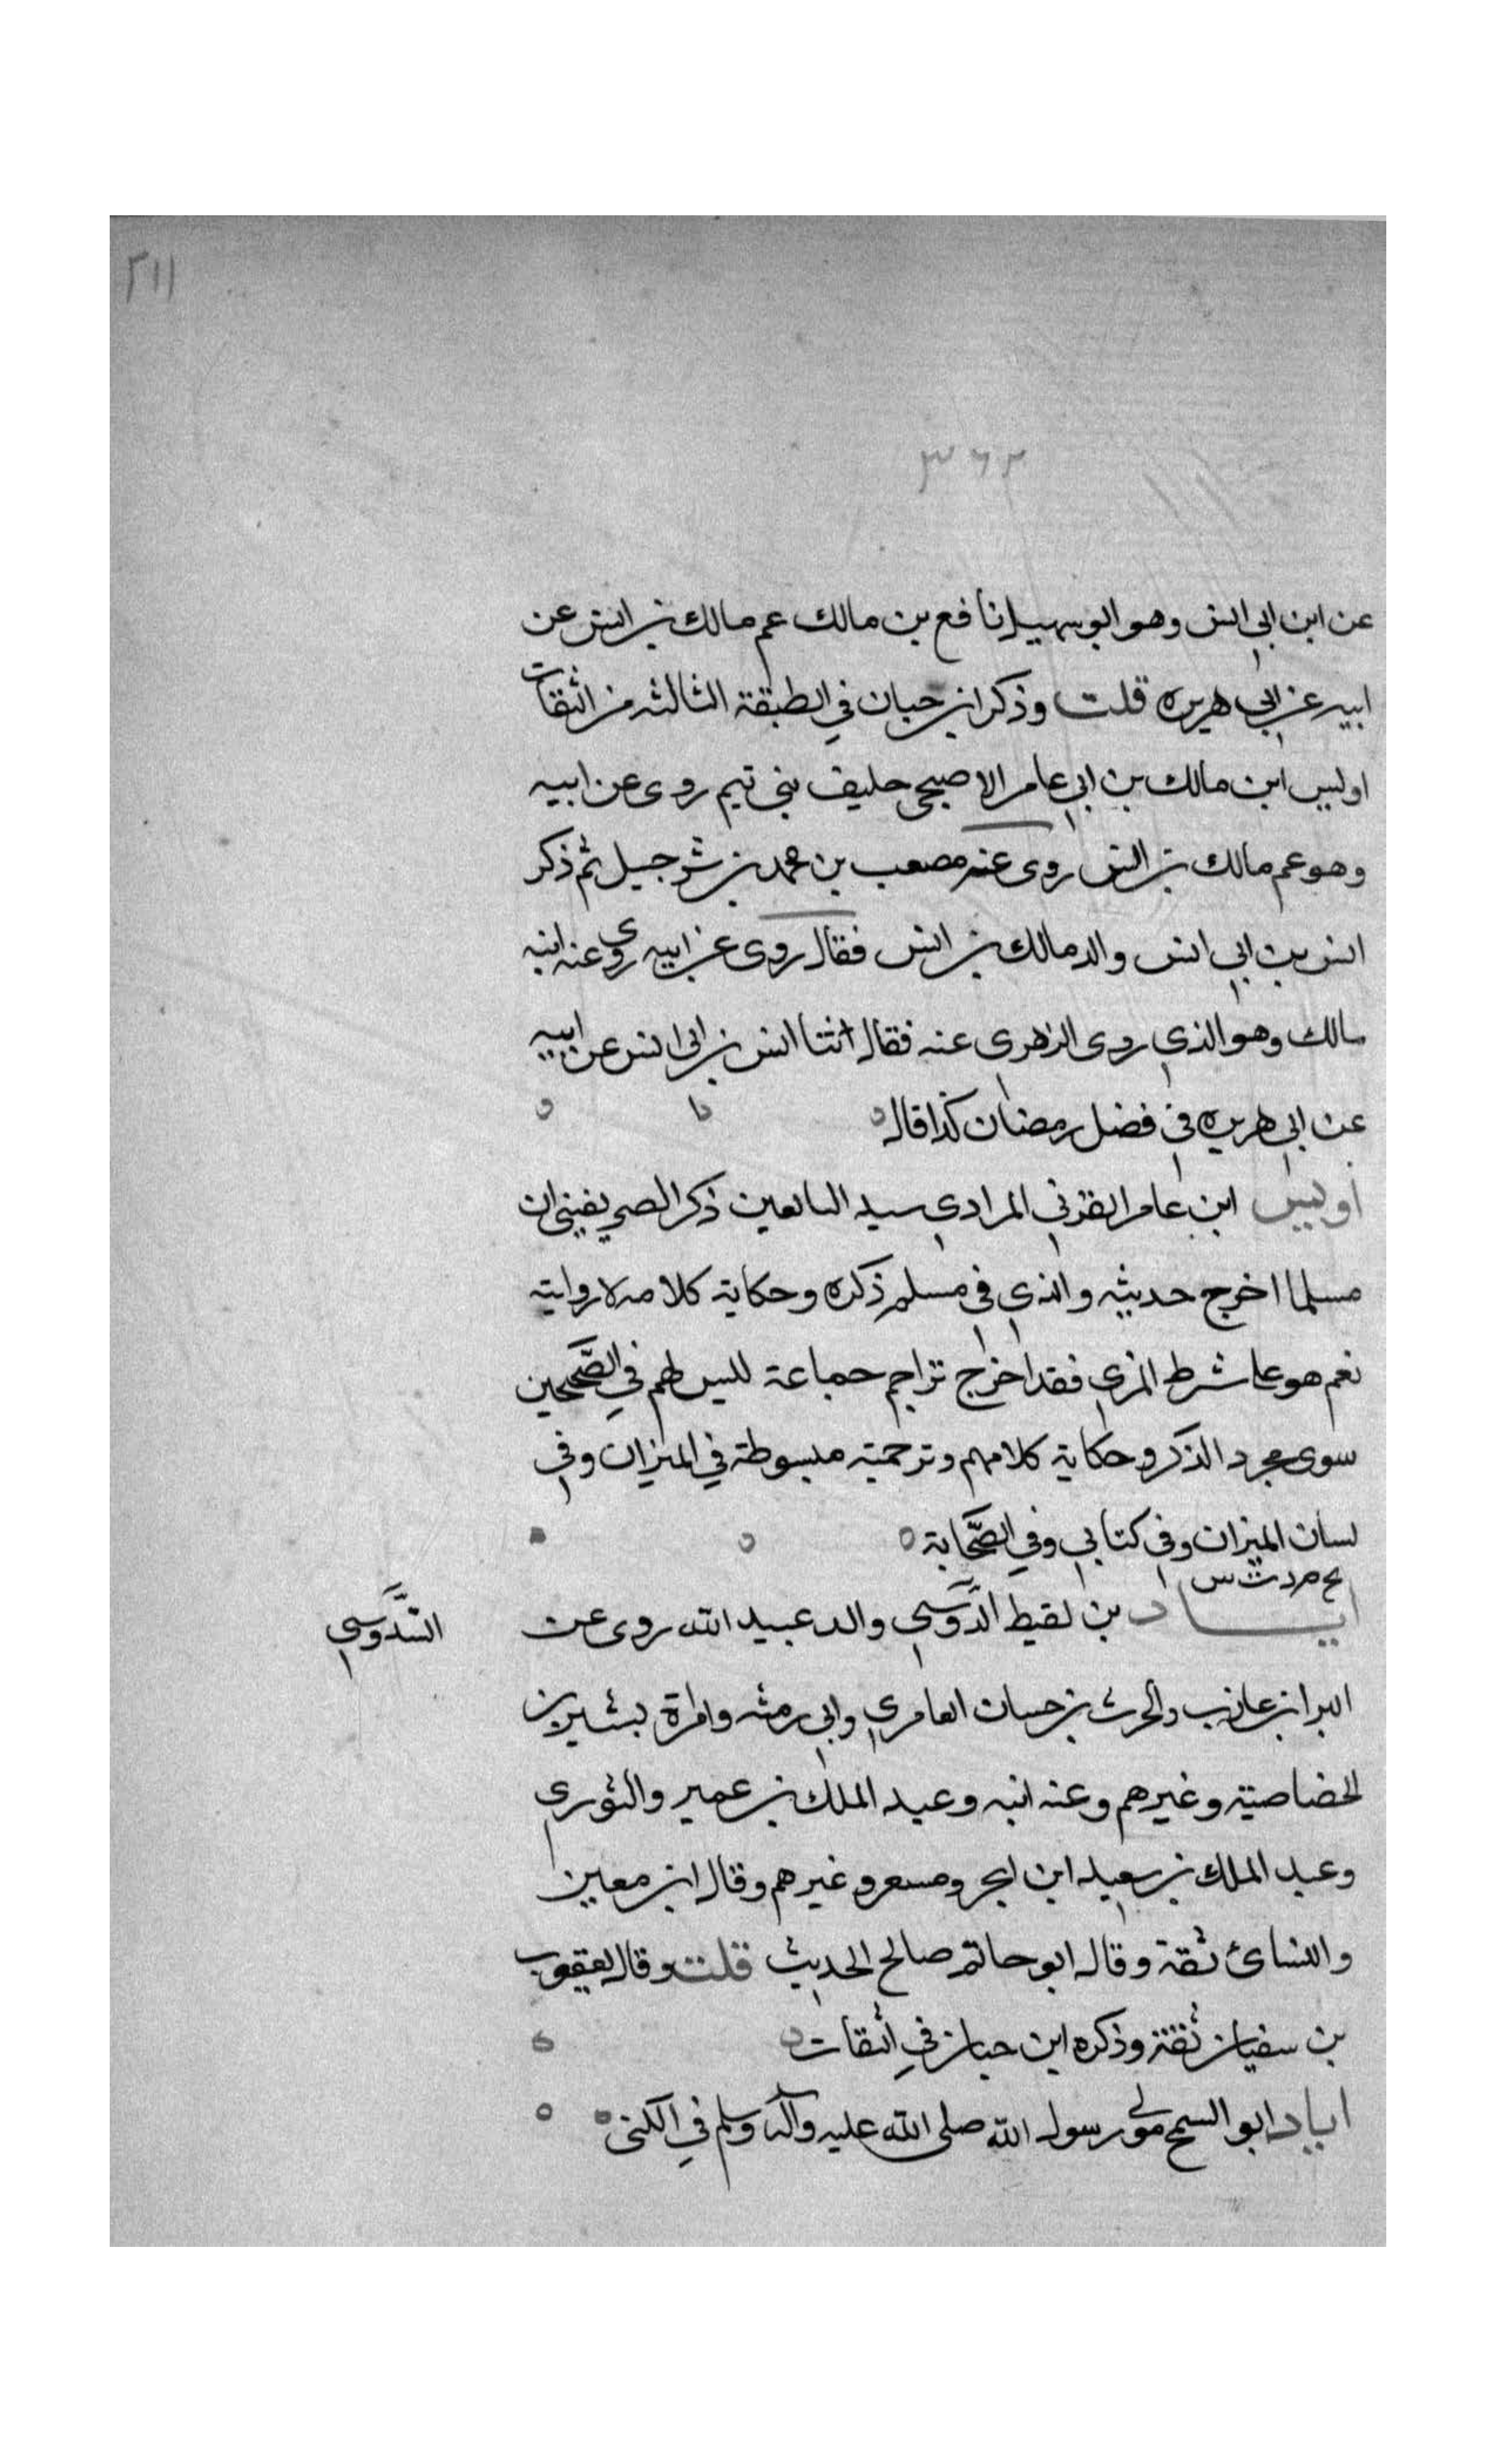 ٢١١
٣٦٢
عن ابن ابي انس وهو ابو سهيل نافع بن مالك عم مالك بن انس عن
ابيه عن ابي هريره قلت وذكر ابن حبان في الطبقة الثالثه من الثقات
اويس ابن مالك بن ابي عامر الاصبحي حليف بني تيم روى عن ابيه
وهو عم مالك بن انس روى عنه مصعب بن محمد بن شرحبيل ثم ذكر
انس بن ابي انس والد مالك بن انس فقال روى عن ابيه روى عنه ابنه
مالك وهو الذي روى الزهرى عنه فقال انثنا انس بن ابي انس عن ابيه
عن ابي هريره في فضل رمضان كذا قال
أويس ابن عامر القرني المرادي سيد التابعين ذكر الصريفيني ان
مسلما اخرج حديثه والذي في مسلم ذكره وحكاية كلامه لا روايته
نعم هو على شرط المزي فقد اخرج تراجم جماعة ليس لهم في الصَّحيحين
سوى مجرد الذكر وحكاية كلامهم وترجمته مبسوطة في الميزان وفي
لسان الميزان وفي كتابي وفي الصَّحابة
بخ م د ت س
اياد بن لقيط الدَّوسي والد عبيد الله روى عن
السَّدوسي
البرا بن عازب والحرث بن حسان العامري وابي رمثه وامراة بشير بن
الخصاصية وغيرهم وعنه ابنه وعبد الملك بن عمير والثوري
وعبد الملك بن سعيد ابن ابجر ومسعر وغيرهم وقال ابن معين
والنسائ ثقة وقال ابو حاتم صالح الحديث قلت وقال يعقوب
بن سفيان ثقة وذكره ابن حبان في الثقات
اياد ابو السمح مولى رسول الله صلى الله عليه وآله وسلم في الكنى